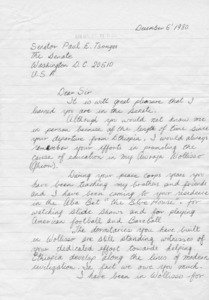 December 5' 1980
Senator Paul E. Tsongas
The Senate
Washington D.C 20510
U.S.A
Dear Sir
It is with great pleasure that I
learned you are in the Senate.
Although you would not know me
in person because of the length of time since
your departure from Ethiopia, I would always
remember your efforts in promoting the
cause of education in my awraja Wolliso
During your peace corps years you
have been teaching my brother and friends
and I have been coming to your residence
in the Aba Bot "the Blue House" for
watching slide shows and for playing
American football and Baseball
The dormitories you have built
in Wolliso are still standing witnesses of
your dedicated effort towards helping
Ethiopia develop along the lines of modern
civilization. In fact we owe you much.
I have been in Wolliso for